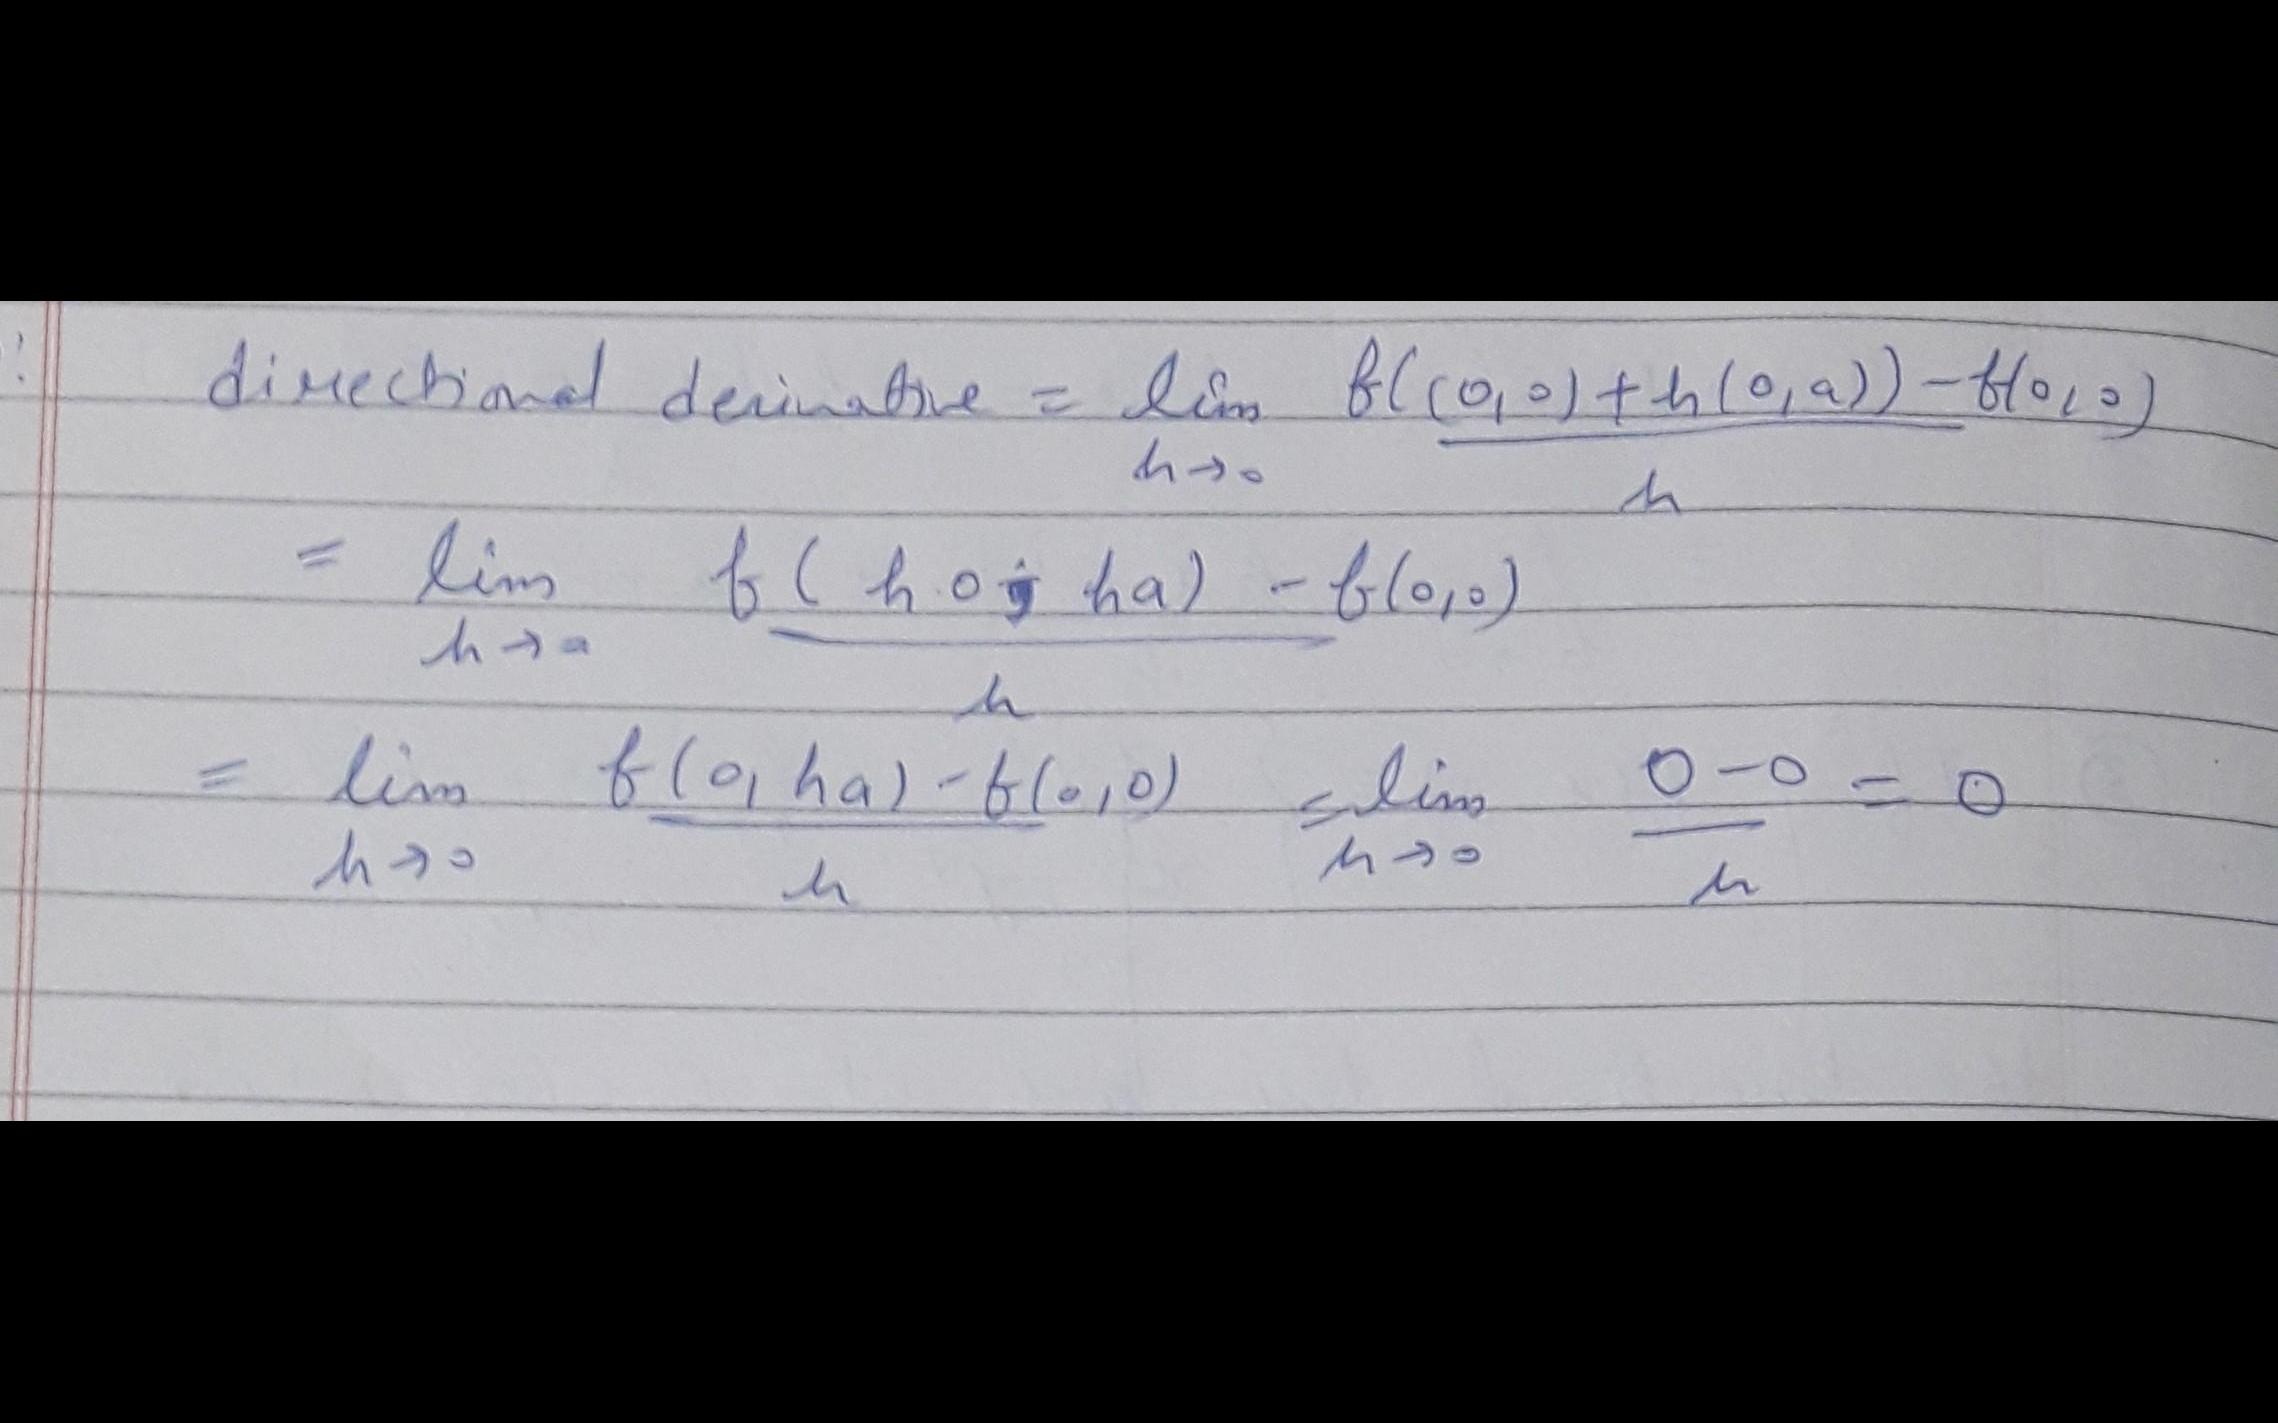 directional derivative = lim h→0 f((0,0)+h(0,a))-f(0,0) / h
= lim h→0 f(h.0, ha) - f(0,0) / h
= lim h→0 f(0, ha) - f(0,0) / h = lim h→0 0-0 / h = 0